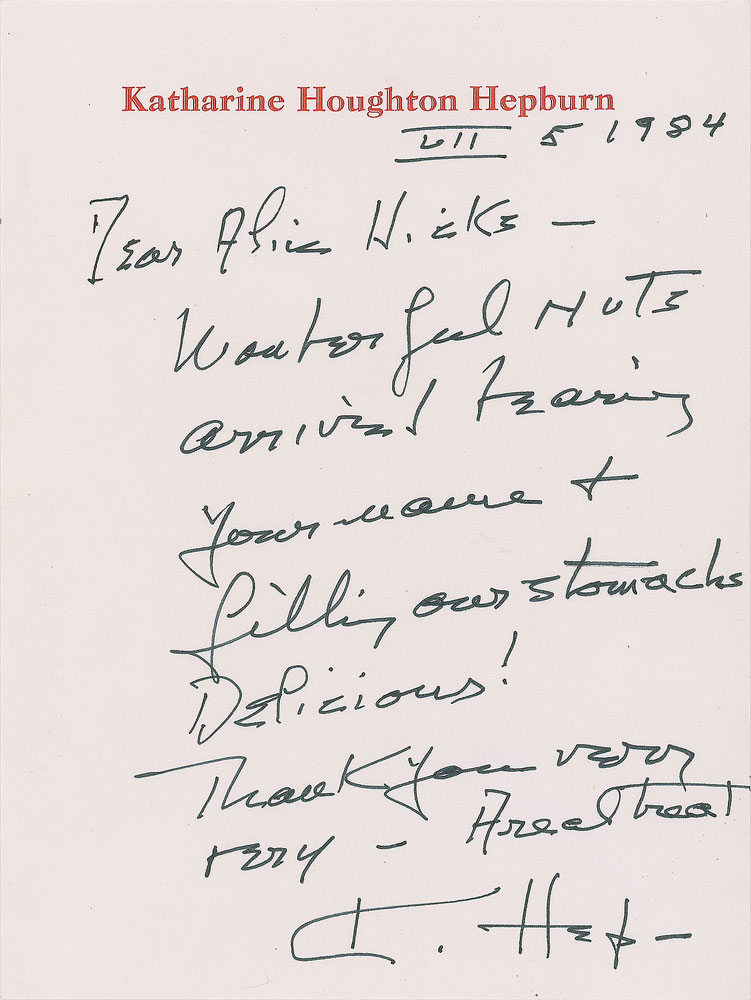 Katharine Houghton Hepburn
VII 5 1984
Dear Alice Hicks —
Wonderful nuts
arrived bearing
your name +
filling our stomachs
Delicious!
Thank you very
very – A real treat
K. Hep –